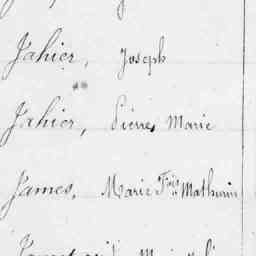 Jahier, Joseph
Jahier, Pierre Marie
James, Marie Fçois Mathurin